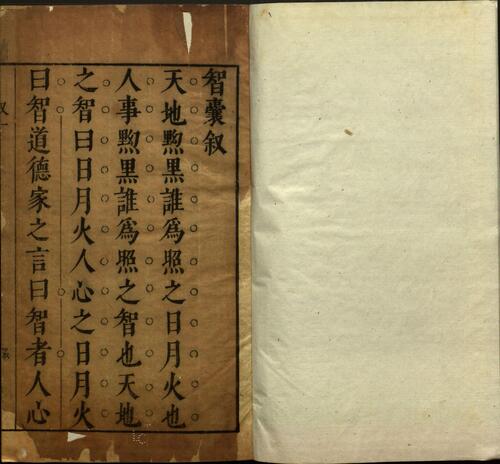 智囊叙
天地黝黑誰爲照之日月火也
人事黝黑誰爲照之智也天地
之智曰日月火人心之日月火
曰智道德家之言曰智者人心